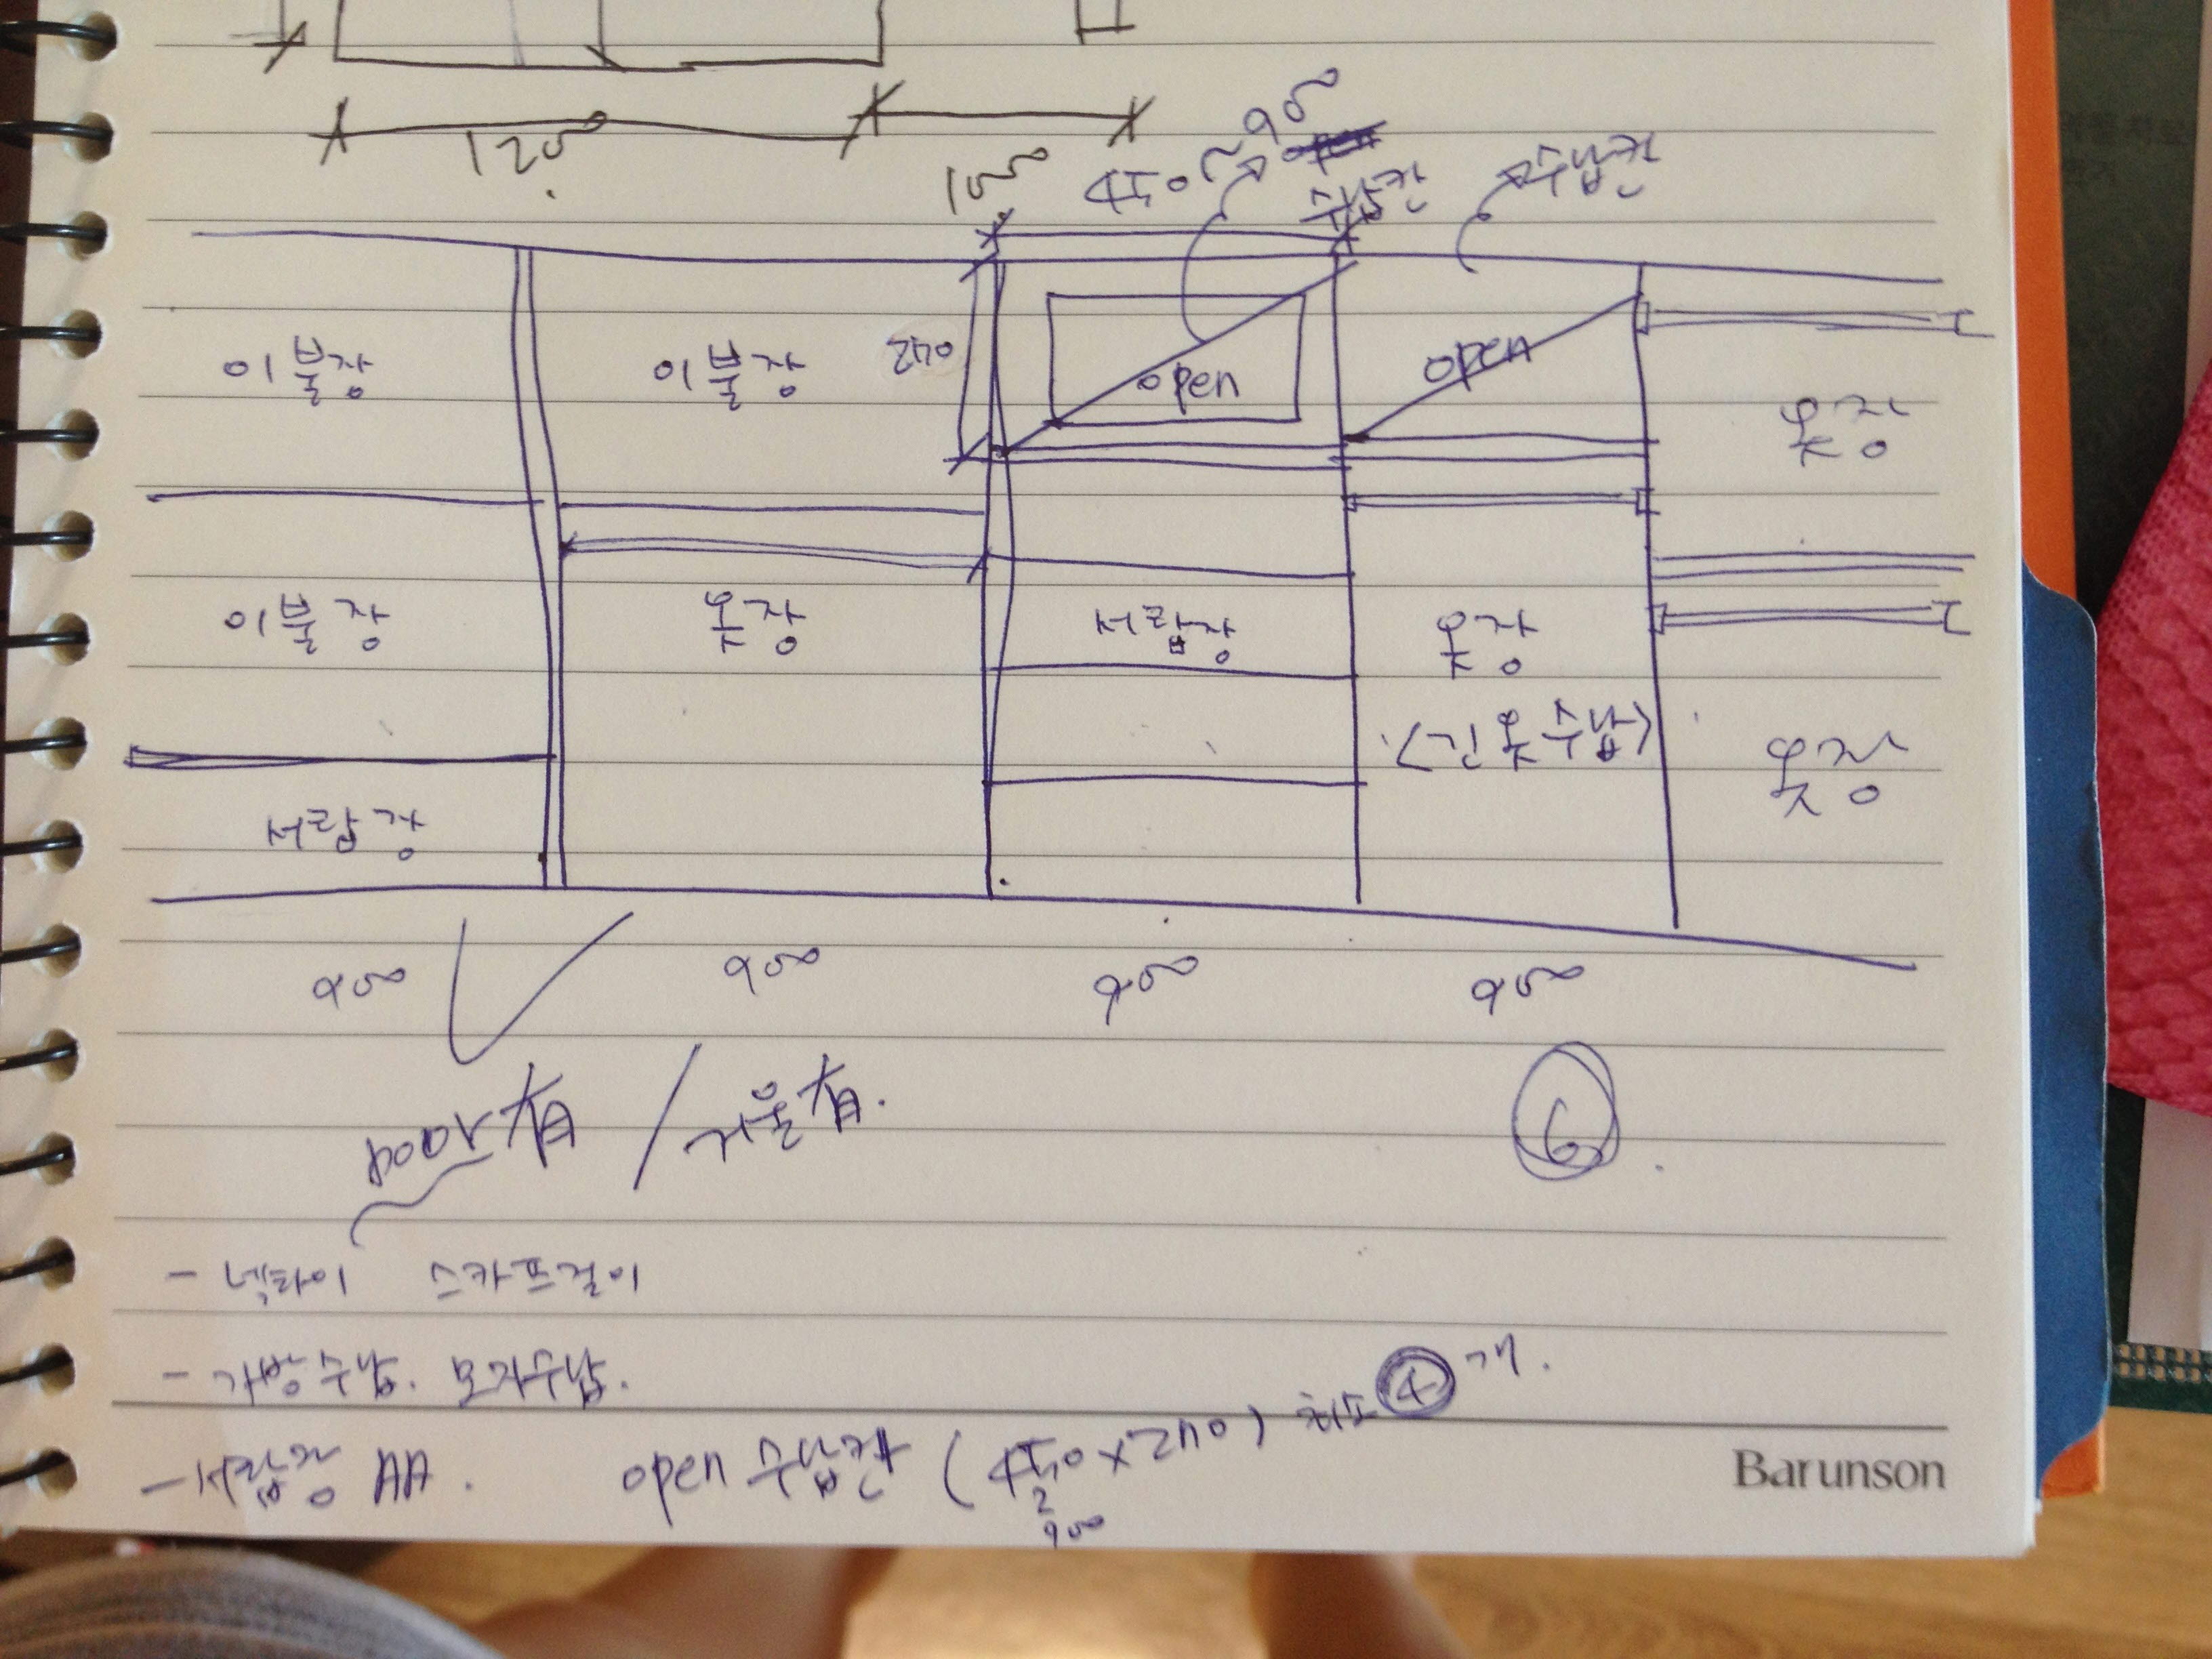 1200
1000
900
수납칸
수납칸
이불장
이불장
240
open
open
옷장
이불장
옷장
서랍장
옷장
<긴 옷 수납>
옷장
서랍장
900
900
900
900
거울有.
6
- 넥타이 스카프걸이
- 가방수납. 모자수납.
- 서랍장
open 수납칸 (450×240) 최소 4개.
900
Barunson